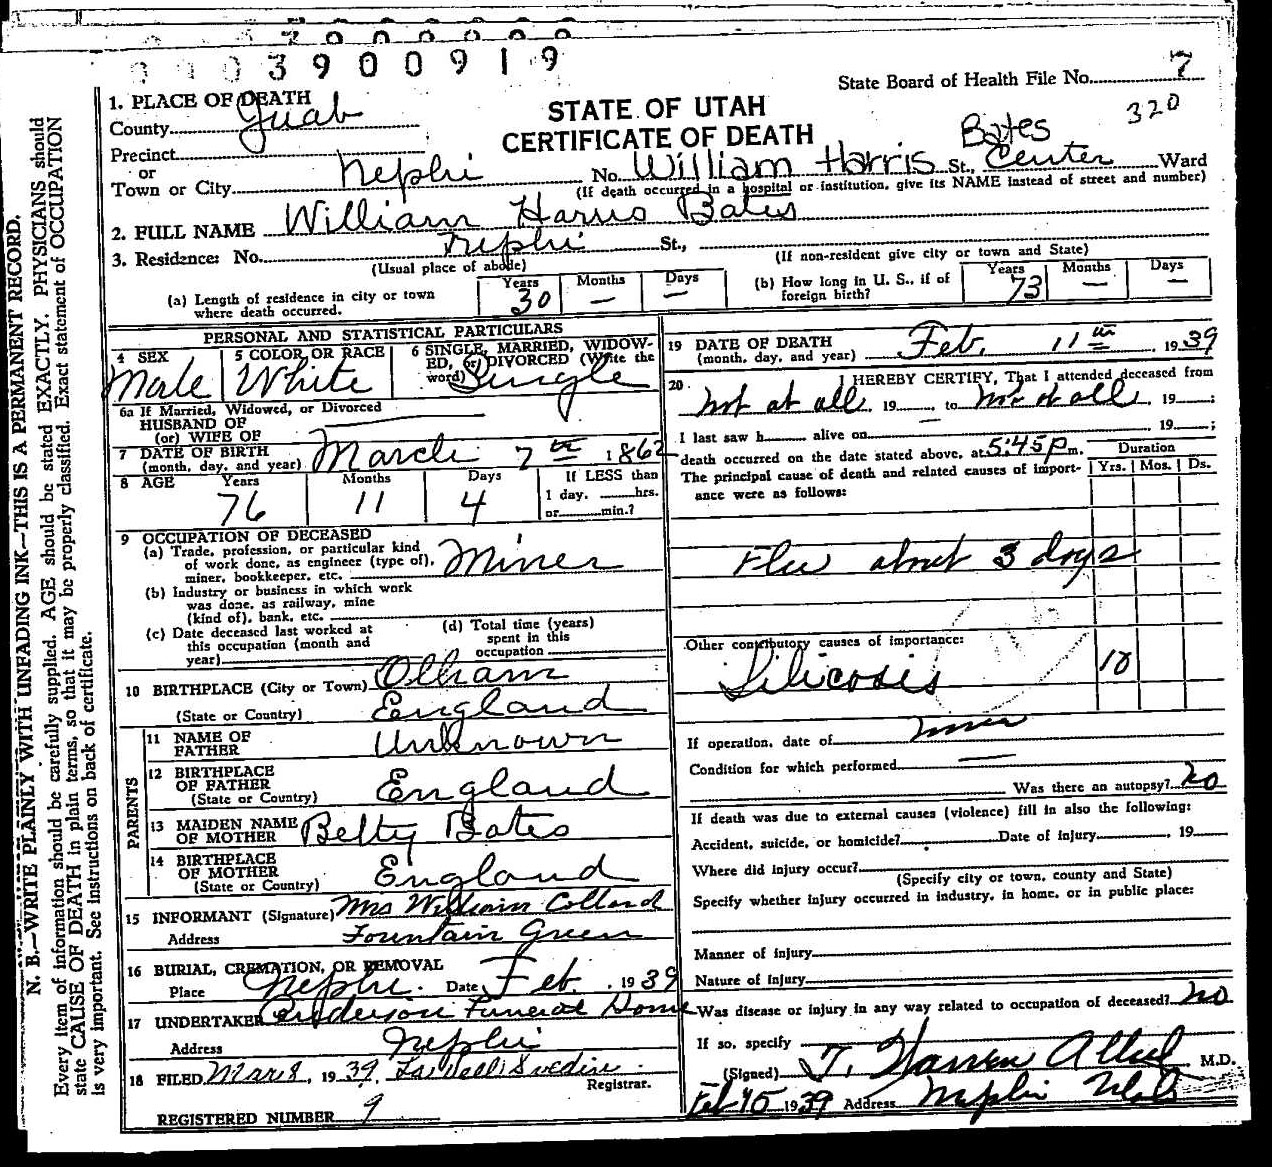 3900919
State Board of Health File No. 7
320
1. PLACE OF DEATH
County Juab
STATE OF UTAH
CERTIFICATE OF DEATH
Precinct
or
Town or City Nephi No. William Harris Bates St., Center Ward
(If death occurred in a hospital or institution, give its NAME instead of street and number)
2. FULL NAME William Harris Bates
3. Residence: No. Nephi St.,
(Usual place of abode) (If non-resident give city or town and State)
(a) Length of residence in city or town where death occurred. Years 30 Months — Days —
(b) How long in U. S., if of foreign birth? Years 73 Months — Days —
PERSONAL AND STATISTICAL PARTICULARS
4 SEX Male
5 COLOR OR RACE White
6 SINGLE, MARRIED, WIDOWED, or DIVORCED (Write the word) Single
6a If Married, Widowed, or Divorced
HUSBAND OF
(or) WIFE OF
7 DATE OF BIRTH
(month, day, and year) March 7th 1862
8 AGE Years 76 Months 11 Days 4 If LESS than
1 day, hrs.
or min.?
9 OCCUPATION OF DECEASED
(a) Trade, profession, or particular kind
of work done, as engineer (type of),
miner, bookkeeper, etc. Miner
(b) Industry or business in which work
was done, as railway, mine
(kind of), bank, etc.
(c) Date deceased last worked at
this occupation (month and
year)
(d) Total time (years)
spent in this
occupation
10 BIRTHPLACE (City or Town) Olham
(State or Country) England
PARENTS
11 NAME OF
FATHER Unknown
12 BIRTHPLACE
OF FATHER England
(State or Country)
13 MAIDEN NAME
OF MOTHER Betty Bates
14 BIRTHPLACE
OF MOTHER England
(State or Country)
15 INFORMANT (Signature) Mrs William Collard
Address Fountain Green
16 BURIAL, CREMATION, OR REMOVAL
Place Nephi. Date Feb. , 1939
17 UNDERTAKER Anderson Funeral Home
Address Nephi
18 FILED Mar 8, 1939.
Registrar.
REGISTERED NUMBER 9
19 DATE OF DEATH
(month, day, and year) Feb. 11th 1939
20 I HEREBY CERTIFY, That I attended deceased from
not at all, 19 — , to not at all, 19 ;
I last saw h alive on 19 ;
death occurred on the date stated above, at 5:45 p m.
The principal cause of death and related causes of importance were as follows:
Duration
Yrs. Mos. Ds.
Flu about 3 days
Other contributory causes of importance:
Silicosis 10
If operation, date of
Condition for which performed —
Was there an autopsy? no
If death was due to external causes (violence) fill in also the following:
Accident, suicide, or homicide? Date of injury , 19
Where did injury occur?
(Specify city or town, county and State)
Specify whether injury occurred in industry, in home, or in public place:
Manner of injury
Nature of injury
Was disease or injury in any way related to occupation of deceased? no
If so, specify
(Signed) T. Harren M.D.
1939 Address Nephi Utah
N. B.—WRITE PLAINLY WITH UNFADING INK—THIS IS A PERMANENT RECORD.
Every item of information should be carefully supplied. AGE should be stated EXACTLY. PHYSICIANS should
state CAUSE OF DEATH in plain terms, so that it may be properly classified. Exact statement of OCCUPATION
is very important. See instructions on back of certificate.